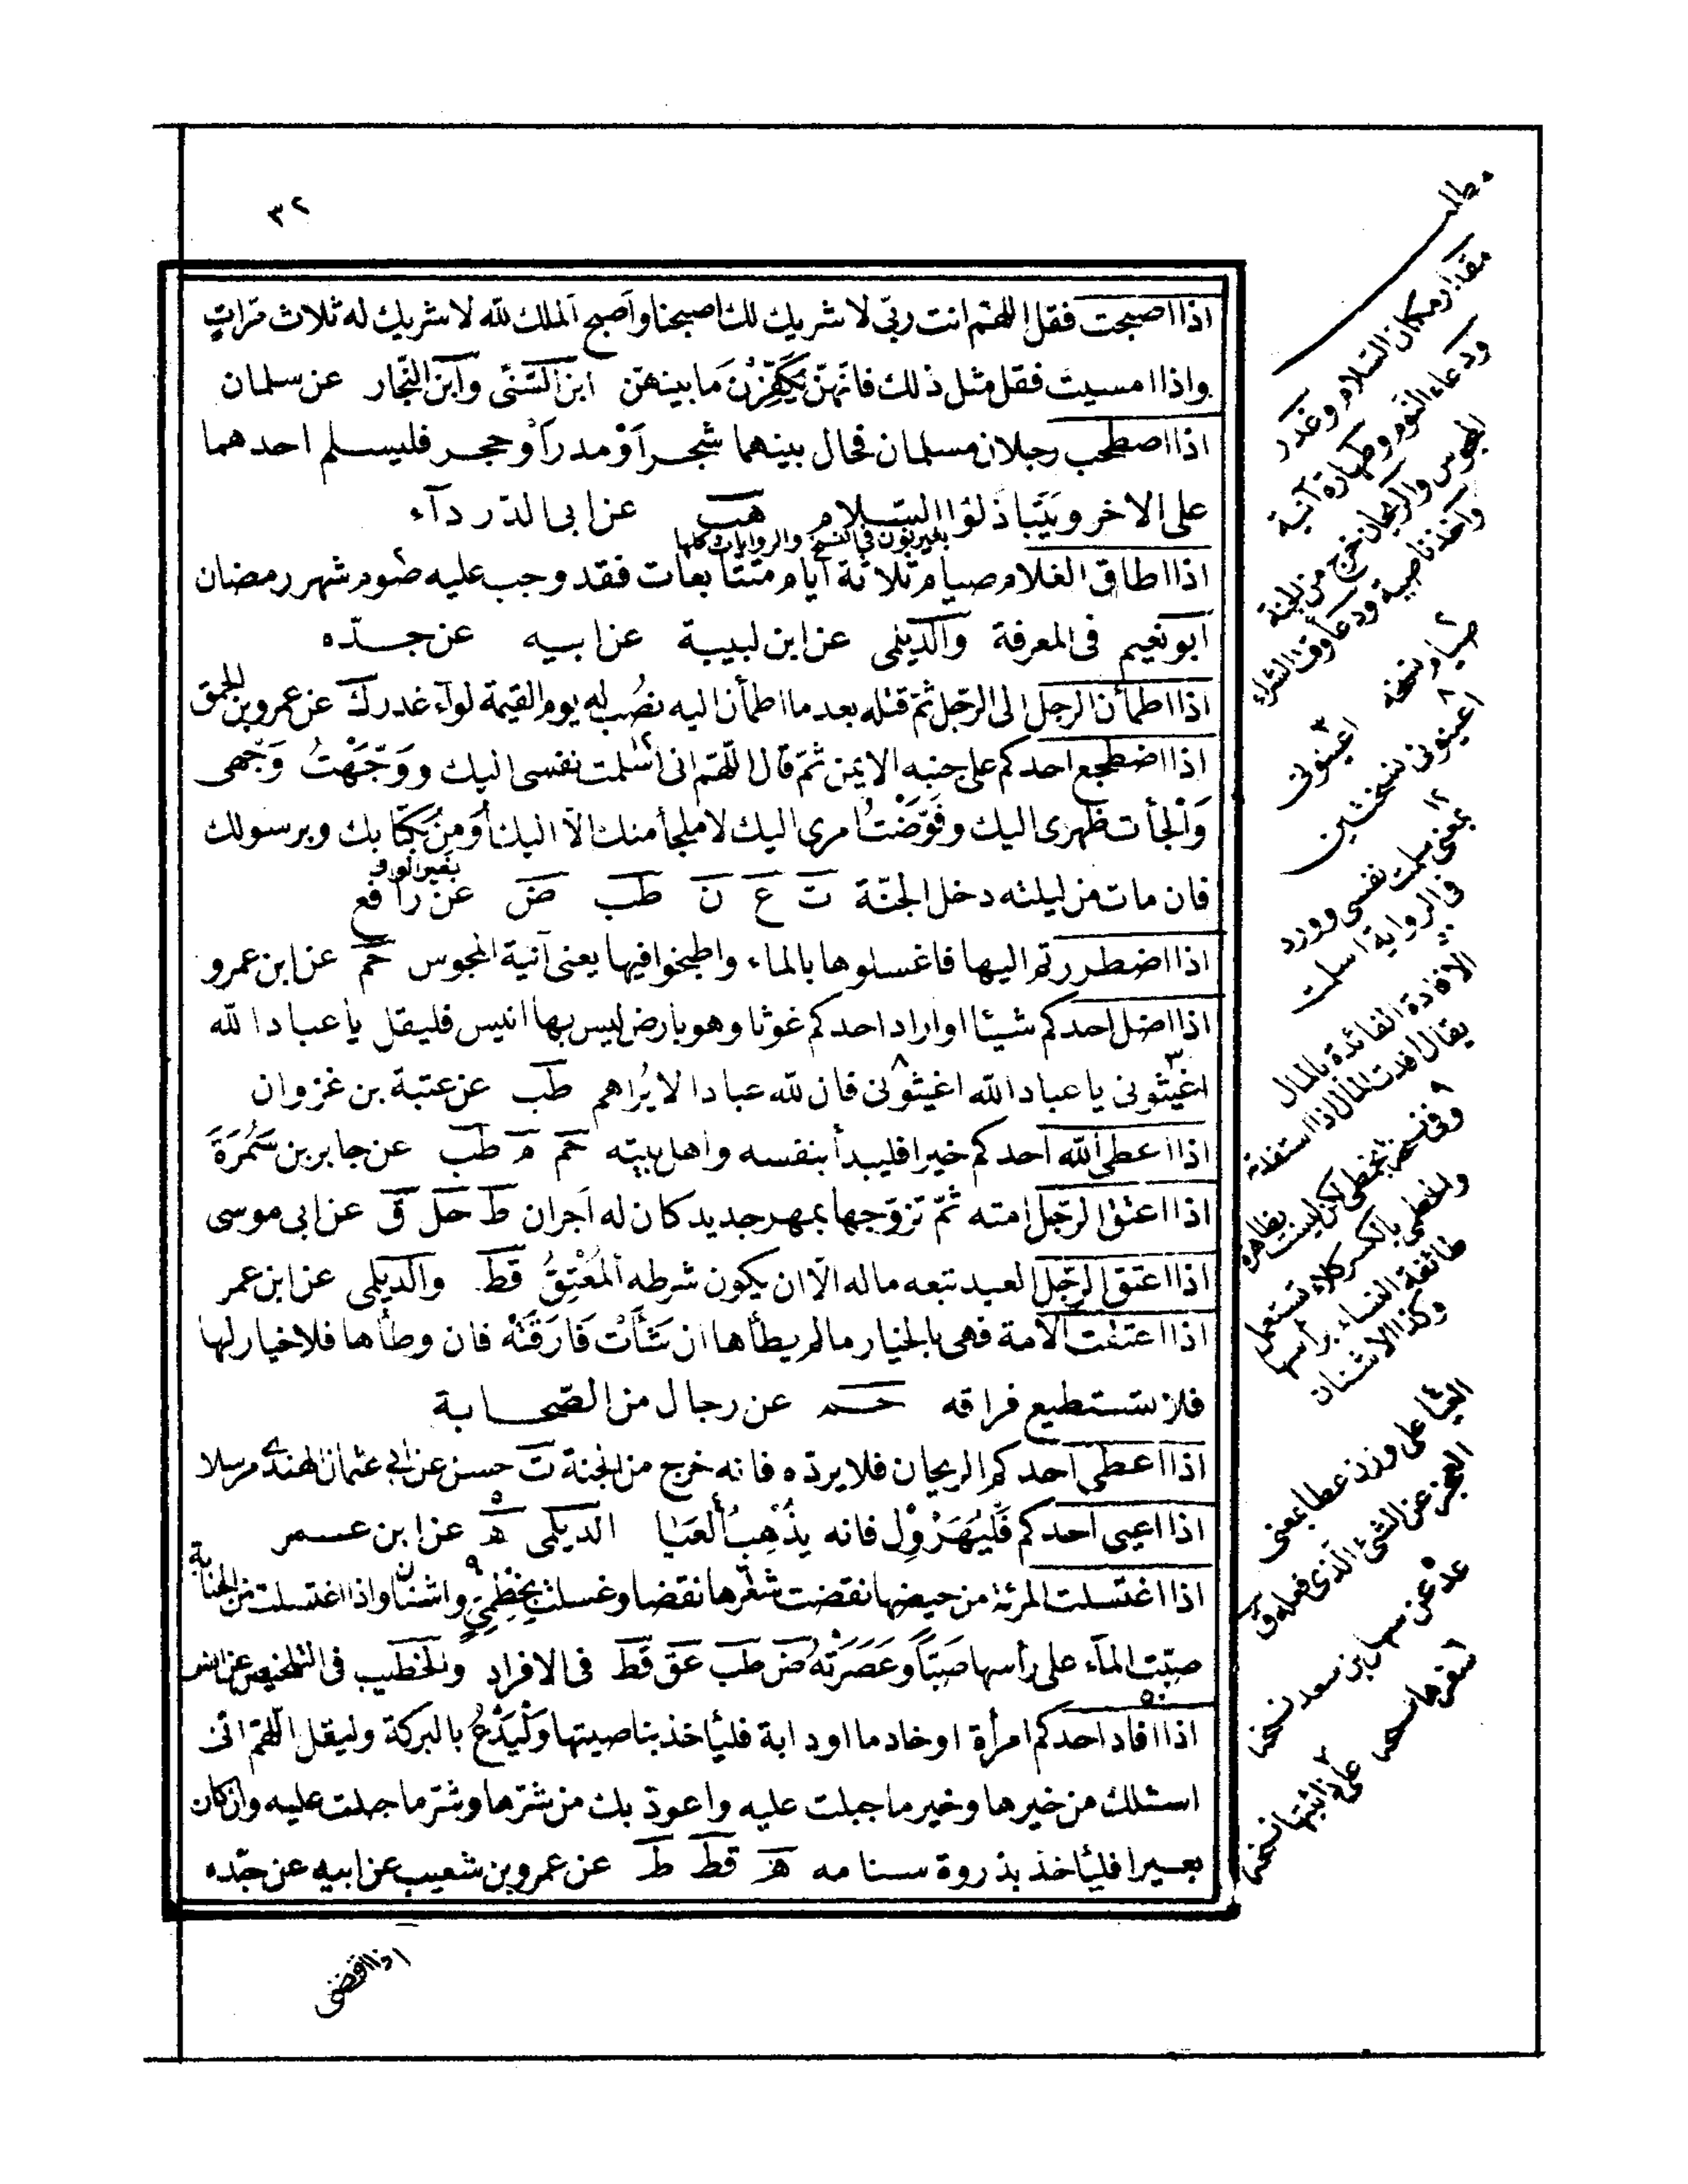 ٣٢
اذا اصبحت فقل اللهم انت ربى لا شريك لك اصبحنا واصبح الملك لله لا شريك له ثلاث مرات
واذا امسيت فقل مثل ذلك فانهن يكفرن ما بينهن ابن السنى وابن النجار عن سلمان
اذا اصطحب رجلان مسلمان فحال بينهما شجر او مدر او حجر فليسلم احدهما
على الاخر ويتباذلوا السلام هب عن ابى الدرداء
بغير نون فى النسخ والروايات كلها
اذا اطاق الغلام صيام ثلاثة ايام متتابعات فقد وجب عليه صوم شهر رمضان
ابو نعيم فى المعرفة والديلمى عن ابن لبيبة عن ابيه عن جده
اذا اطمأن الرجل الى الرجل ثم قتله بعد ما اطمأن اليه نصب له يوم القيمة لواء غدر ك عن عمرو بن الحمق
اذا اضطجع احدكم على جنبه الايمن ثم قال اللهم انى اسلمت نفسى اليك ووجهت وجهى
والجأت ظهرى اليك وفوضت امرى اليك لا ملجأ منك الا اليك أومن بكتابك وبرسولك
فان مات من ليلته دخل الجنة ت ع ن طب ض عن رافع
اذا اضطررتم اليها فاغسلوها بالماء واطبخوا فيها يعنى آنية المجوس حم عن ابن عمرو
اذا اضل احدكم شيئا او اراد احدكم غوثا وهو بارض ليس بها انيس فليقل يا عباد الله
اغيثونى يا عباد الله اغيثونى فان لله عبادا لا يراهم طب عن عتبة بن غزوان
اذا اعطى الله احدكم خيرا فليبدأ بنفسه واهل بيته حم م طب عن جابر بن سمرة
اذا اعتق الرجل امته ثم تزوجها بمهر جديد كان له اجران ط حل ق عن ابى موسى
اذا اعتق الرجل العبد تبعه ماله الا ان يكون شرطه المعتق قط والديلمى عن ابن عمر
اذا اعتقت الامة فهى بالخيار ما لم يطأها ان شأت فارقته فان وطأها فلا خيار لها
فلا تستطيع فراقه حم عن رجال من الصحابة
اذا اعطى احدكم الريحان فلا يرده فانه خرج من الجنة ت حسن عن ابى عثمان الهندى مرسلا
اذا اعيى احدكم فليهرول فانه يذهب العيا الديلمى ه عن ابن عمر
اذا اغتسلت المرئة من حيضها نقضت شعرها نقضا وغسلت بخطمى واشنان واذا اغتسلت من الجنابة
صبت الماء على رأسها صبا وعصرته ض طب عق قط فى الافراد والخطيب فى التلخيص عن انس
اذا افاد احدكم امرأة او خادما او دابة فليأخذ بناصيتها وليدع بالبركة وليقل اللهم انى
اسئلك من خيرها وخير ما جبلت عليه واعوذ بك من شرها وشر ما جبلت عليه وان كان
بعيرا فليأخذ بذروة سنامه ه قط ط عن عمرو بن شعيب عن ابيه عن جده
اذا افضى
مطلب
مقدار مكان السلام وغدر
ودعاء النوم وطهارة آنية
المجوس والريحان خرج من الجنة
واخذ ناصية ودعا وقت الشراء
صيام نسخه
اعينونى
اعينونى نسختين
بمعنى سلمت نفسى وورد
فى الرواية اسلمت
الافادة الفائدة بالمال
يقال افدت المال اذا استفدته
وفى نسخ بخطمى لكن ليست بظاهرة
والخطمى بالكسر كلاء تستعمل
طائفة النساء برأسها
وكذا الاشنان
العيا على وزن عطا بمعنى
العجز عن الشئ الذى فعله ق